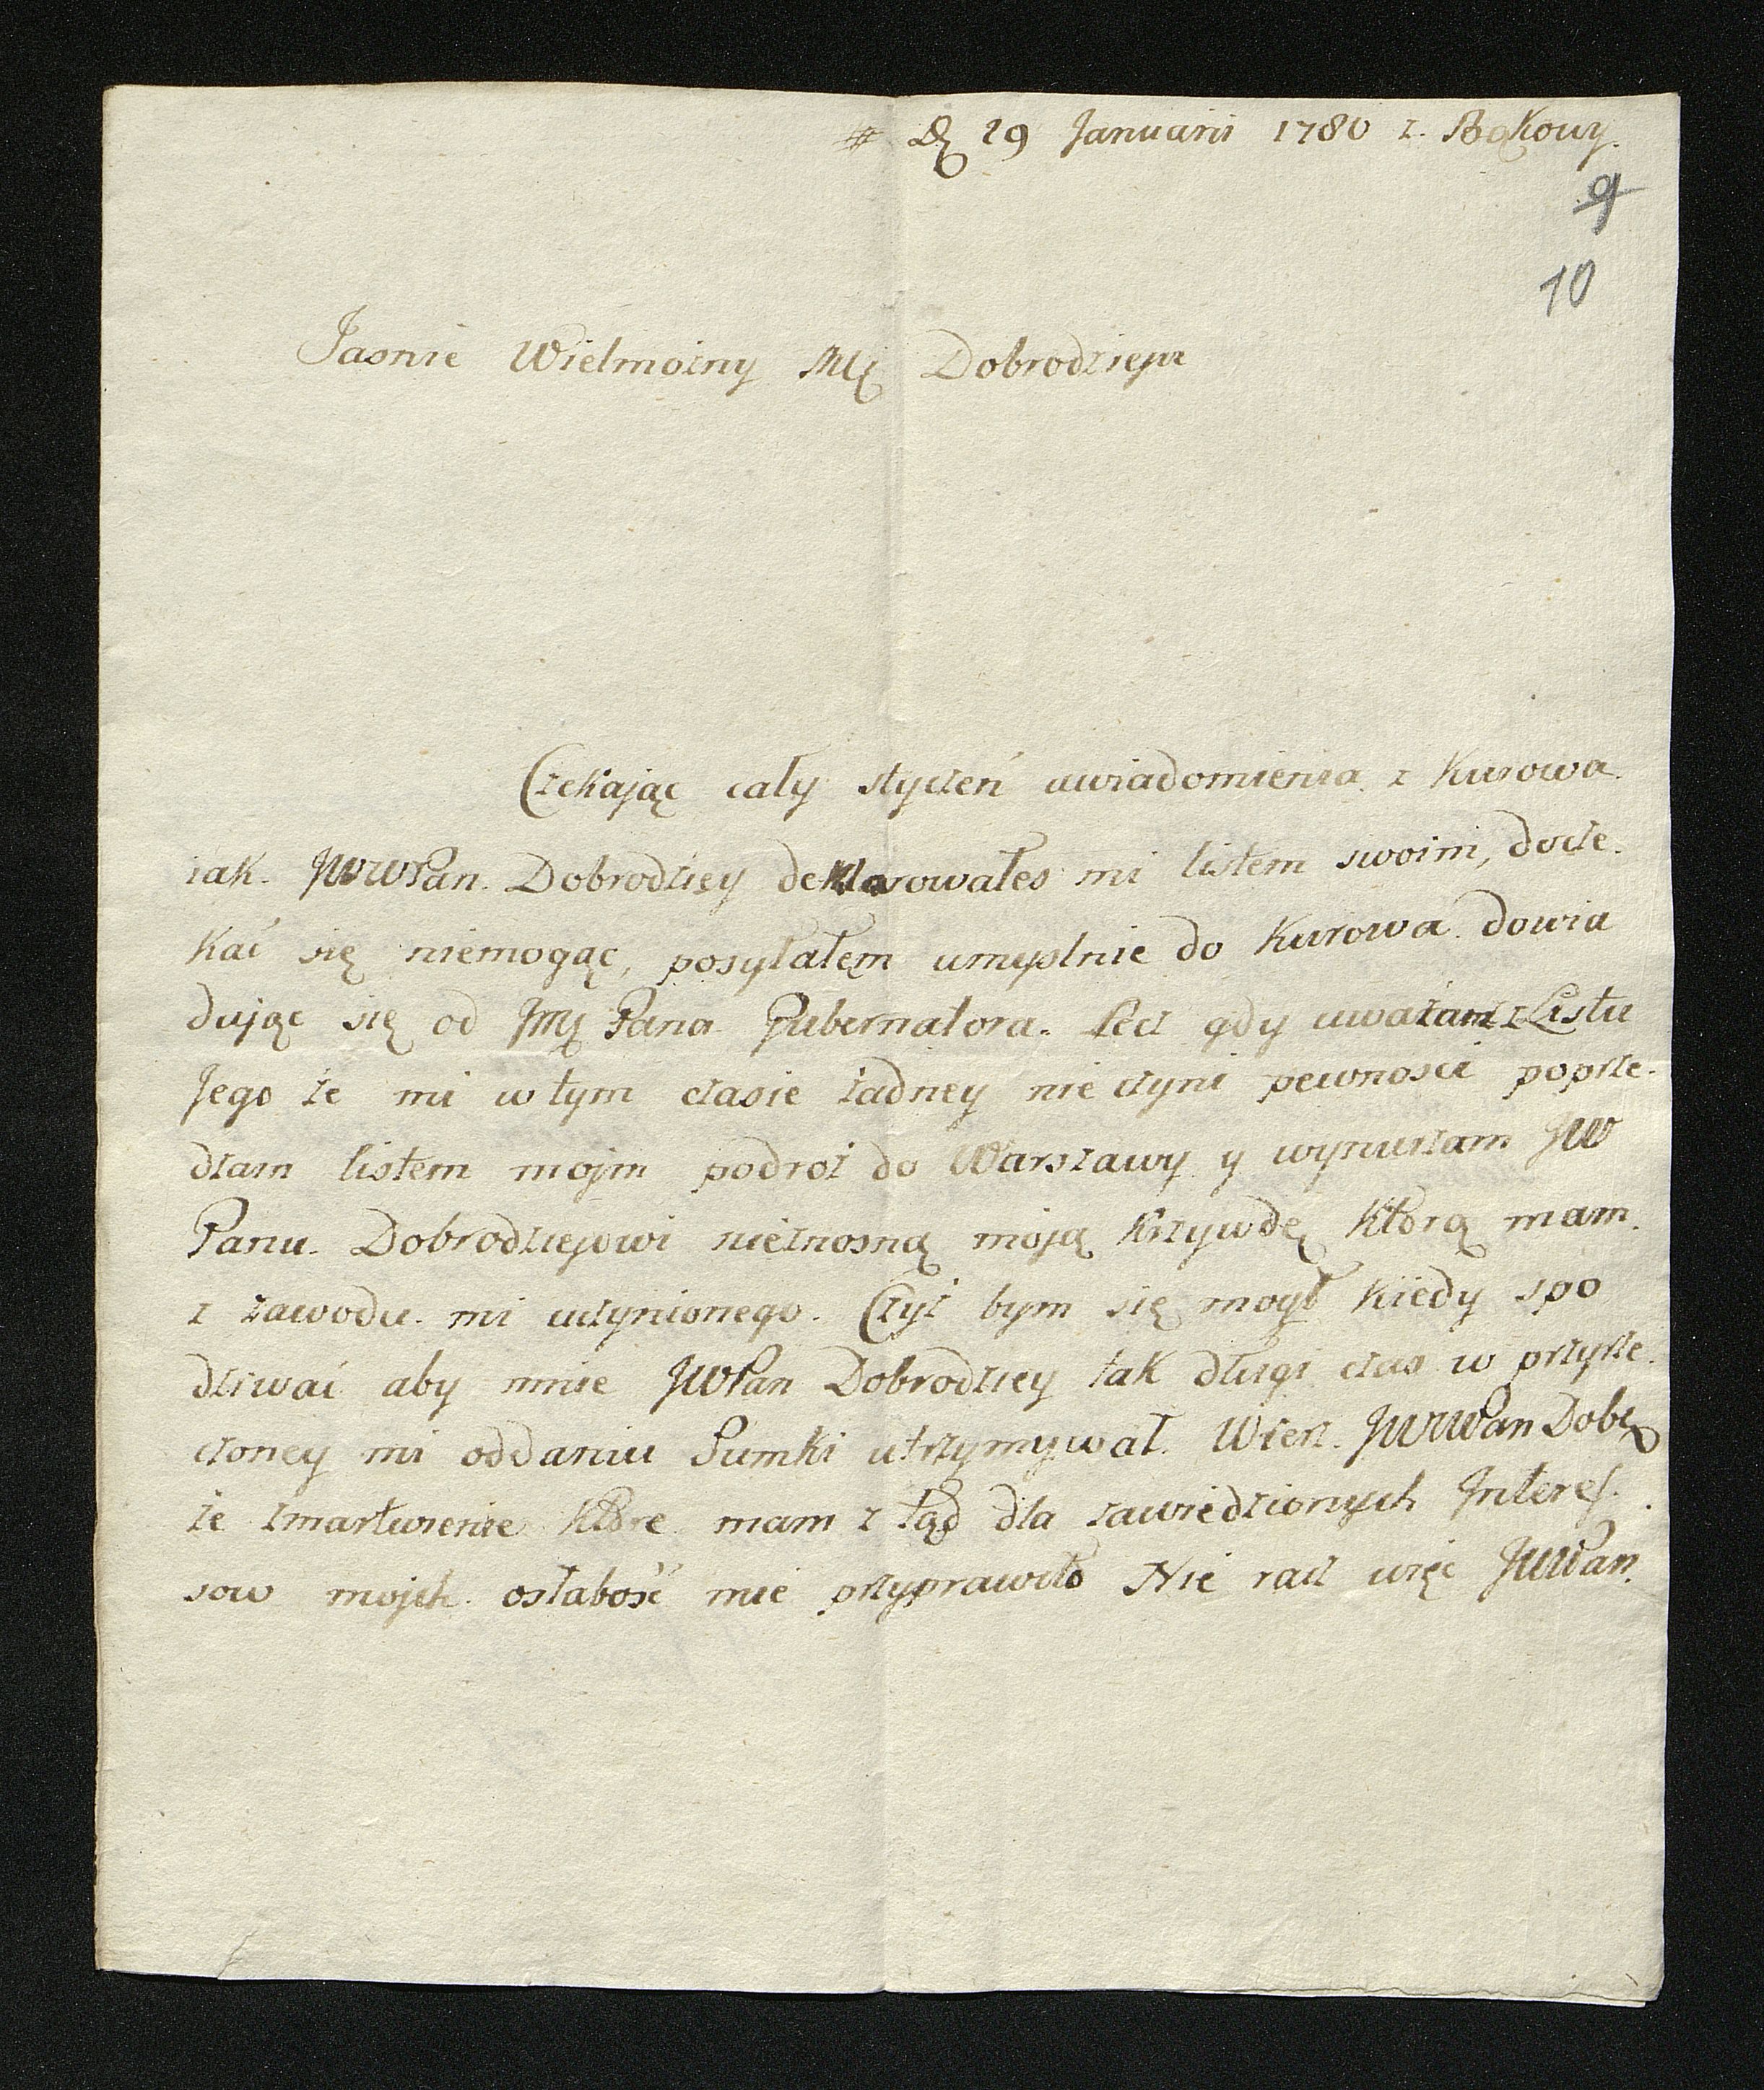 # D 29 Januarii 1780 z. Bąkowy.
9
10
Jasnie Wielmożny Mci Dobrodzieju
Czekając cały styczeń uwiadomienia z Kurowa.
iak. JWWPan. Dobrodziey deklarowałes mi listem swoim, docze.
kać się niemogąc, posyłałęm umyslnie do Kurowa. dowia
dując się od Jmci Pana Gubernatora. Lecz gdy uważam z Listu
Jego że mi w tym czasie żadney nie czyni pewnosci poprze.
dzam listem mojm podroż do Warszawy y wynurzam JW
Panu. Dobrodziejowi nieznosną moją krzywdę którą mam.
z zawodu. mi uczynionego. Czyż bym się mogł kiedy spo
dziwać aby mnie JWPan Dobrodziey tak długi czas w przyrze.
czoney mi oddaniu Sumki utrzymywał. Wierz. JWWPan Dobr
że zmartwienie które mam z tąd dla zawiedzionych Interes.
sow mojch. osłabość mie przyprawiło Nie racz więc JWPan.